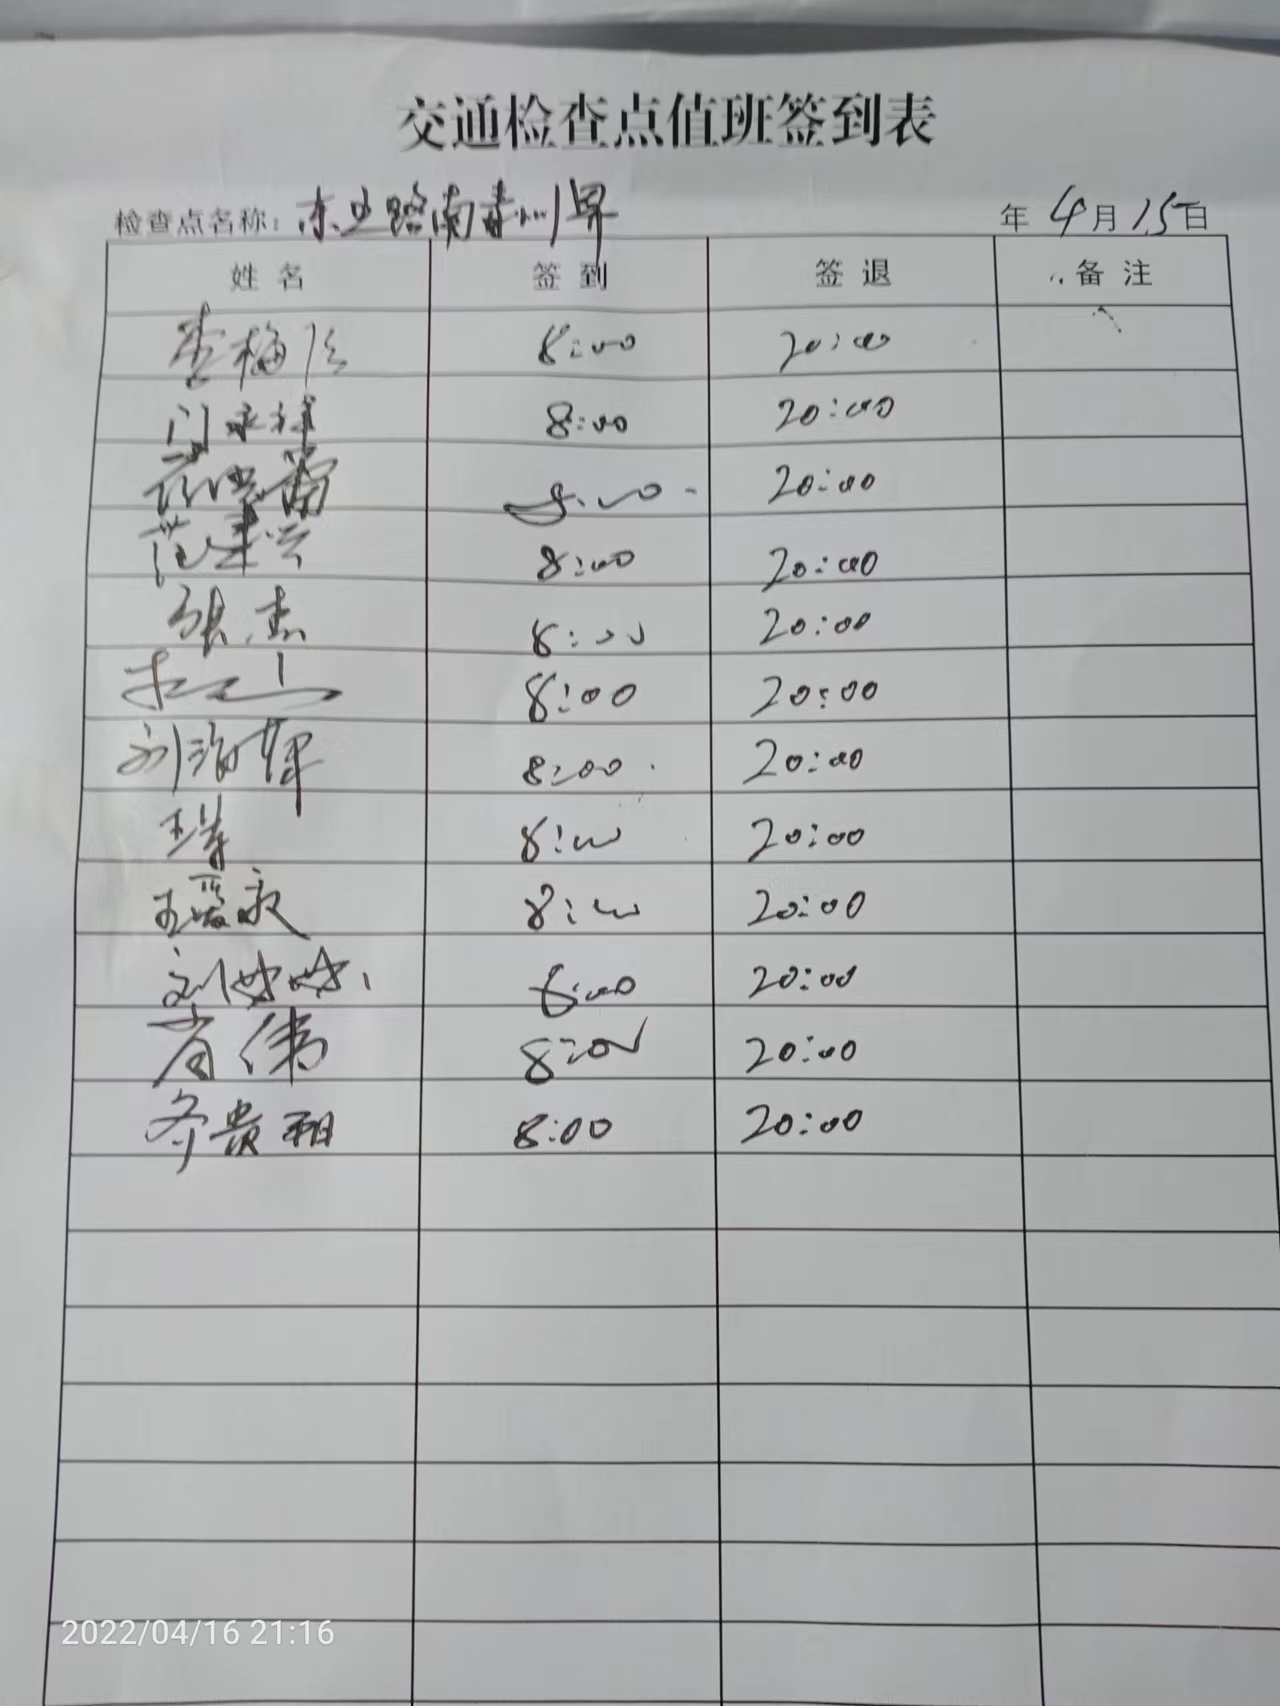 交通检查点值班签到表
检查点名称: 东 路南青州界 年 4月15日
姓名 签到 签退 备注
李梅 8:00 20:00
门永祥 8:00 20:00
8:00 20:00
范建兰 8:00 20:00
张杰 8:00 20:00
8:00 20:00
刘海辉 8:00 20:00
8:00 20:00
王 8:00 20:00
刘婷婷 8:00 20:00
肖伟 8:00 20:00
贵 8:00 20:00
2022/04/16 21:16